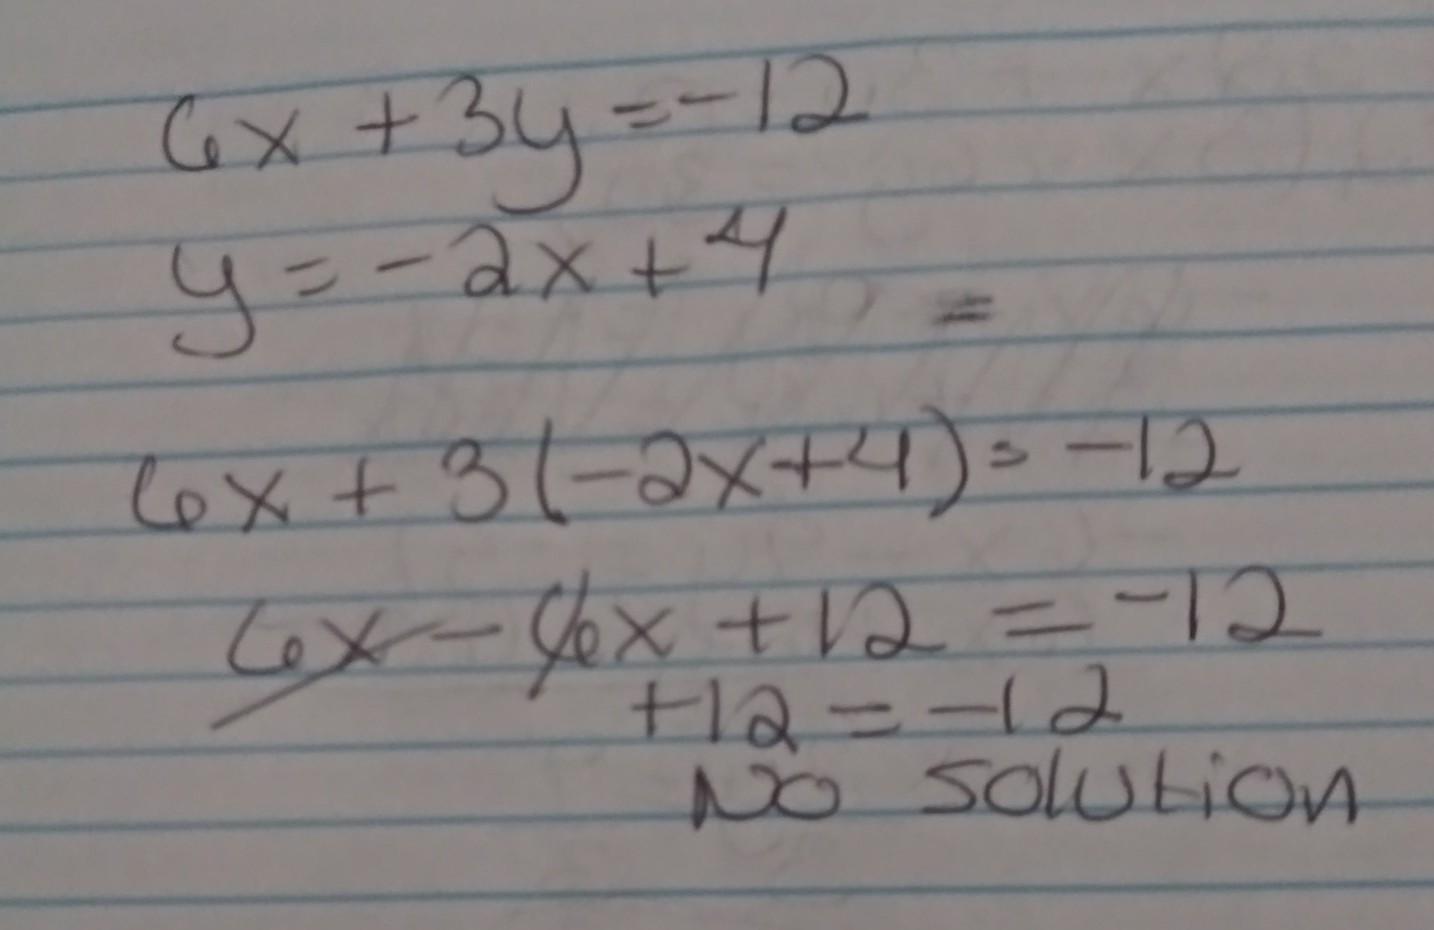 6x + 3y = -12
y = -2x + 4
=
6x + 3(-2x+4) = -12
6x - 6x + 12 = -12
+12 = -12
No solution